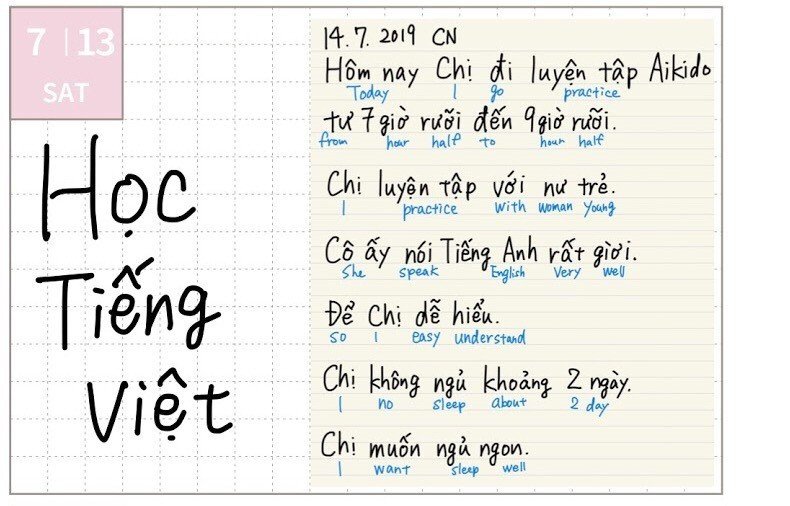 7 | 13
SAT
Học
Tiếng
Việt
14.7.2019 CN
Hôm nay Chị đi luyện tập Aikido
Today I go practice
tư 7 giờ rưỡi đến 9 giờ rưỡi.
from hour half to hour half
Chị luyện tập với nư trẻ.
I practice with woman young
Cô ấy nói Tiếng Anh rất giời.
She speak English Very well
Để Chị dễ hiểu.
so I easy understand
Chị không ngủ khoảng 2 ngày.
I no sleep about 2 day
Chị muốn ngủ ngon.
I want sleep well